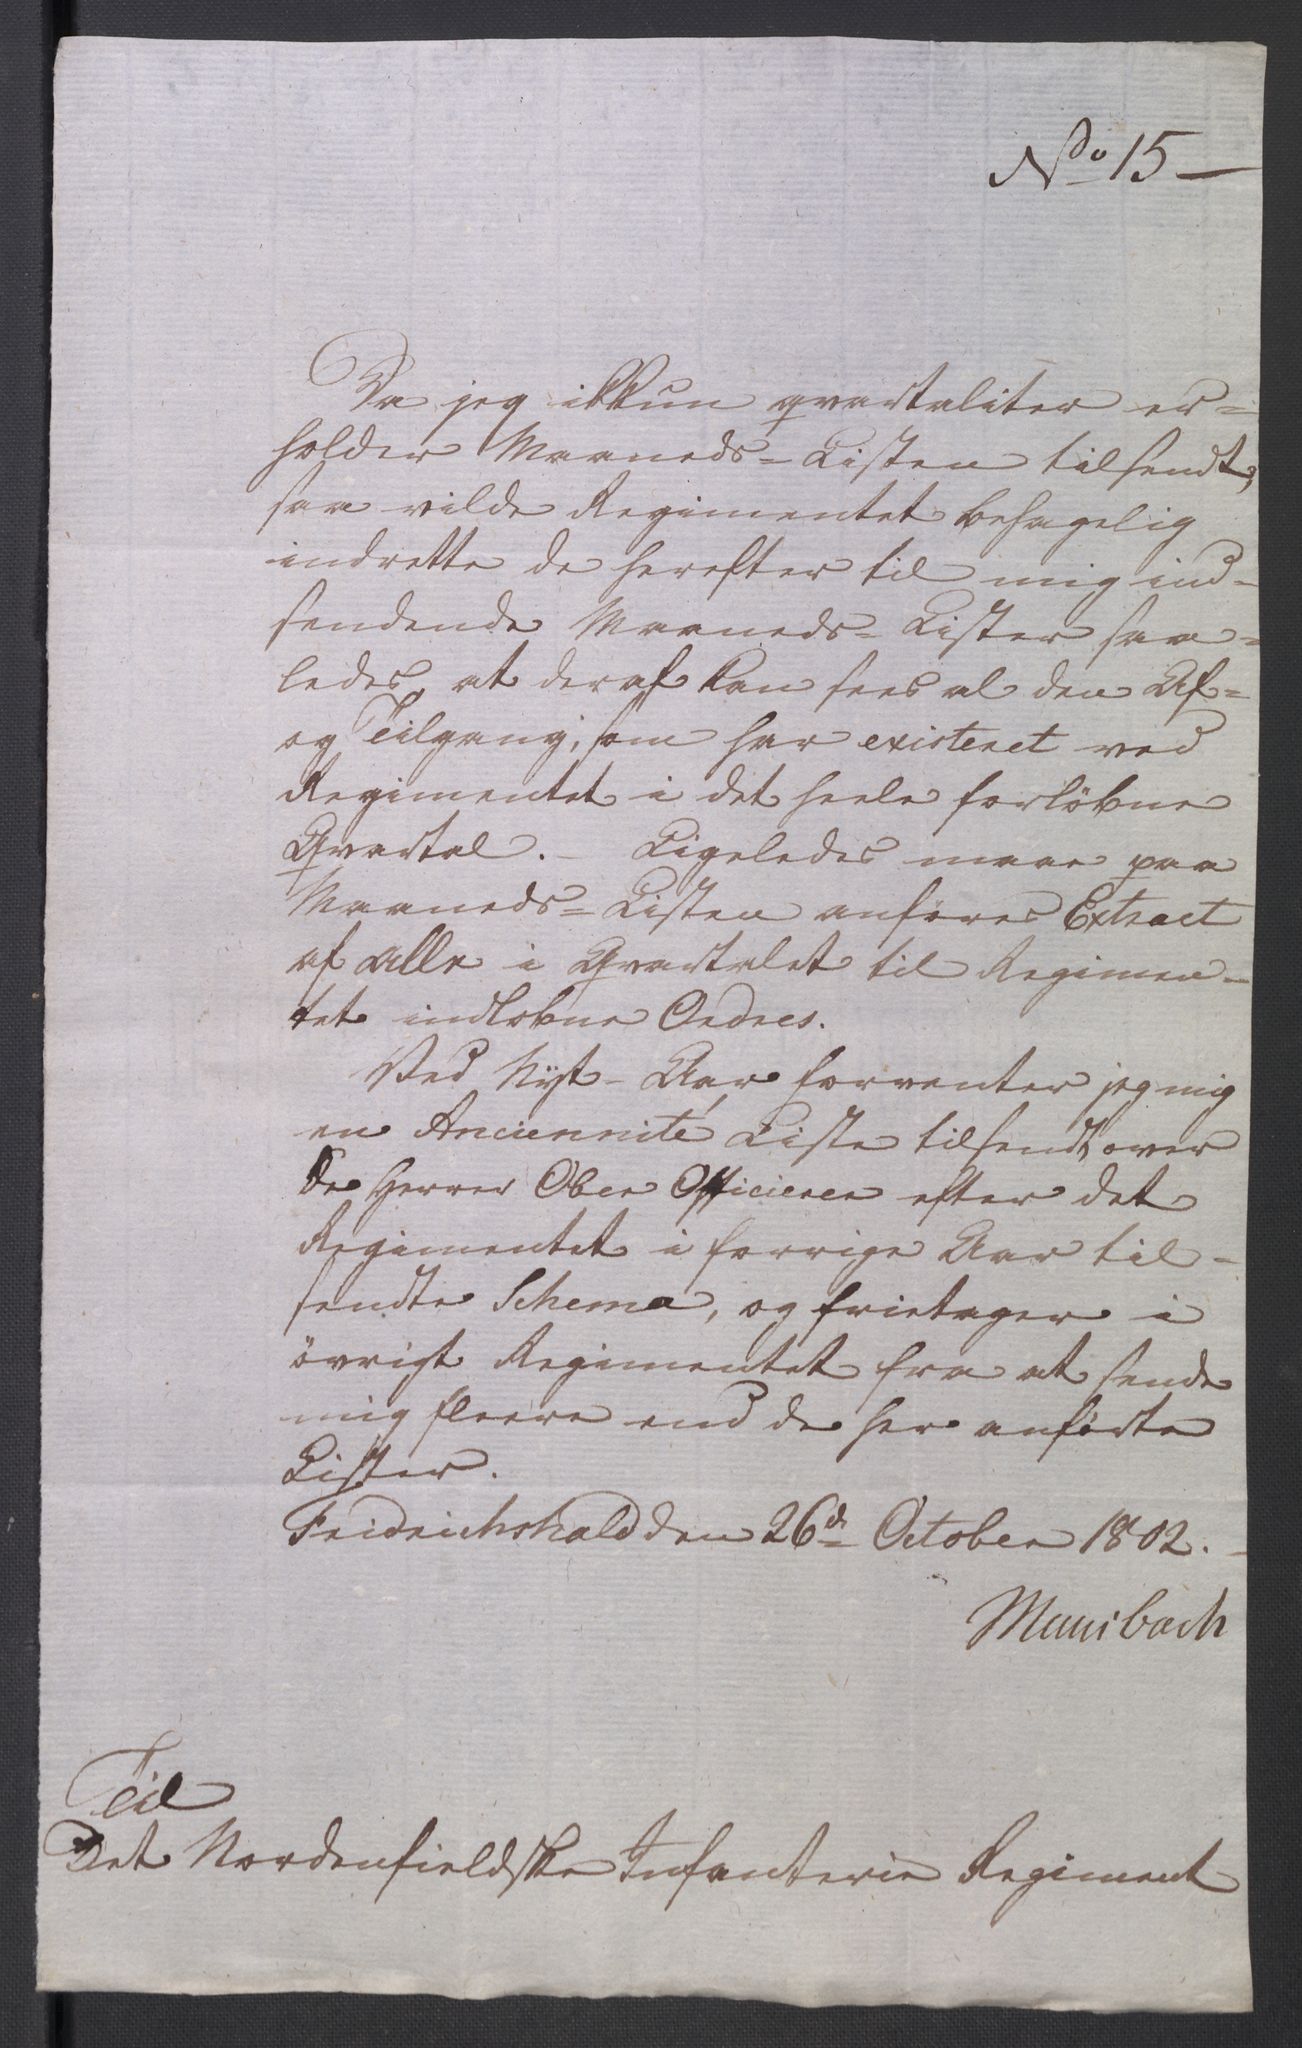 No 15 —
Da jeg ikkun qvartaliter er=
holder Maaneds=Listen tilsendt,
saa vilde Regimentet behagelig
indrette de herefter til mig ind-
sendende Maaneds=Lister saa=
ledes, at deraf kan sees al den Af=
og Tilgang, som har existeret ved
Regimentet i det heele forløbne
Qvartal. – Ligeledes maae paa
Maaneds=Listen anføres Extract
af alle i Qvartalet til Regimen-
tet indløbne Ordres.
Ved Nyt-Aar forventer jeg mig
en Anciennité Liste tilsendt over
De Herrer Ober Officierer efter det
Regimentet i forrige Aar til-
sendte Schema, og fritager i
övrigt Regimentet fra at sende
mig fleere end de her anførte
Lister.
Fridrichshald den 26de October 1802. -
Mansbach
Til
Det Nordenfieldske Infanterie Regiment